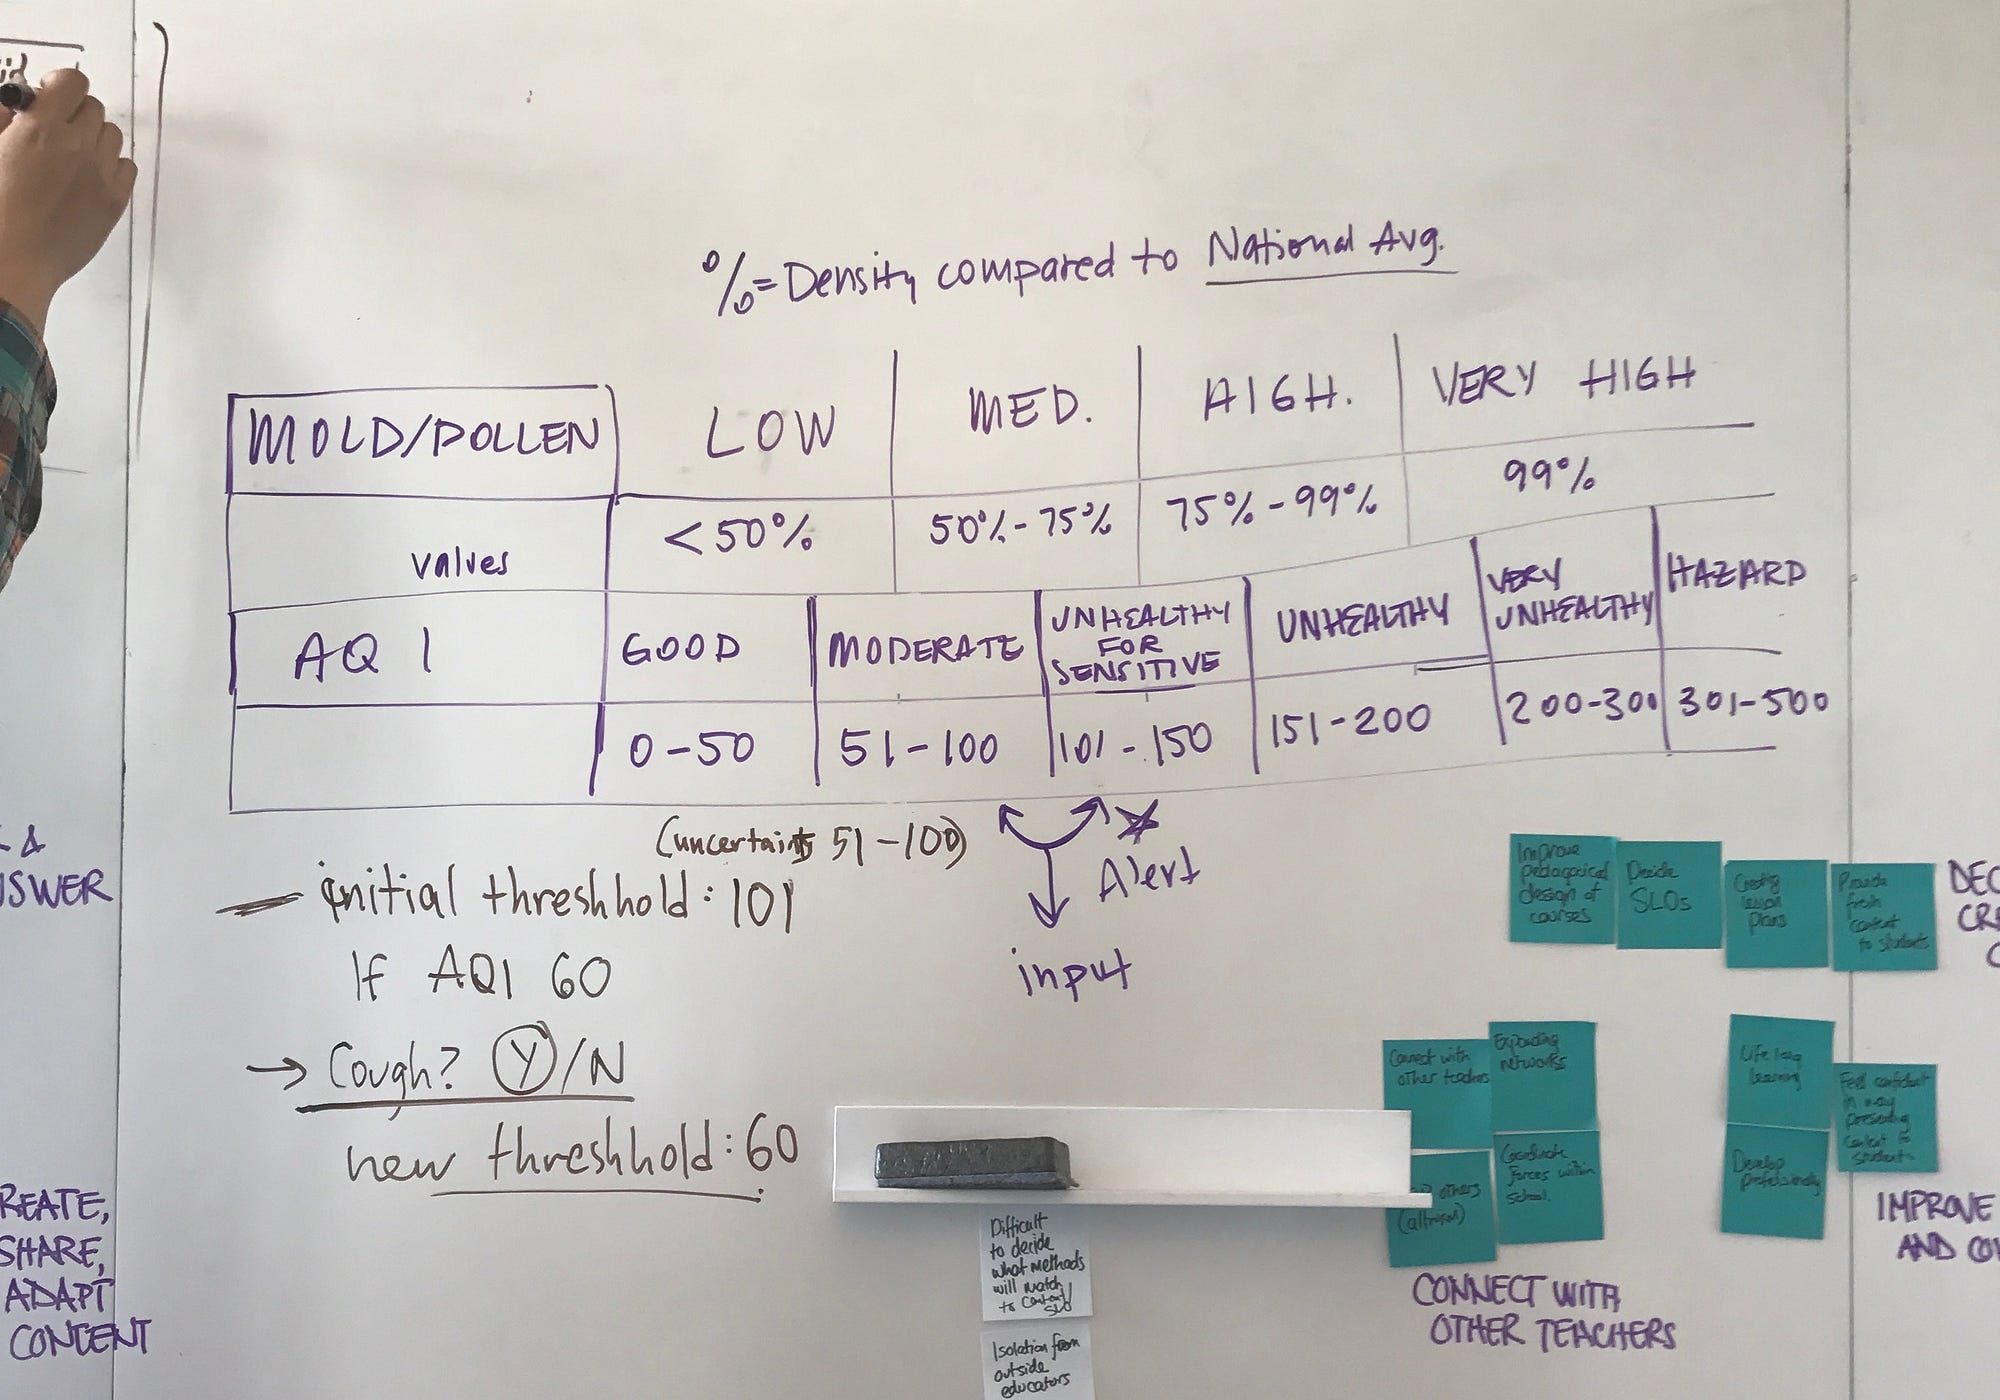 %=Density compared to National Avg.
MOLD/POLLEN LOW MED. HIGH. VERY HIGH
values <50% 50%-75% 75%-99% 99%
AQI GOOD MODERATE UNHEALTHY FOR SENSITIVE UNHEALTHY VERY UNHEALTHY HAZARD
0-50 51-100 101-150 151-200 200-300 301-500
(uncertainty 51-100)
Alert
input
initial threshhold: 101
If AQI 60
→ Cough? Y/N
new threshhold: 60
&
REATE,
SHARE,
ADAPT
CONTENT
Improve
pedagogical
design of
courses
Decide
SLOs
lesson
plans
Provide
fresh
content
to students
DEC
CRE
C
Connect with
other teachers
Expanding
networks
others
(altruism)
Coordinate
forces within
school.
CONNECT WITH
OTHER TEACHERS
Life long
learning
Develop
professionally
Feel confident
in way
presenting
content to
students
IMPROVE
AND CO
Difficult
to decide
what methods
will match
to content/
SLO
Isolation from
outside
educators